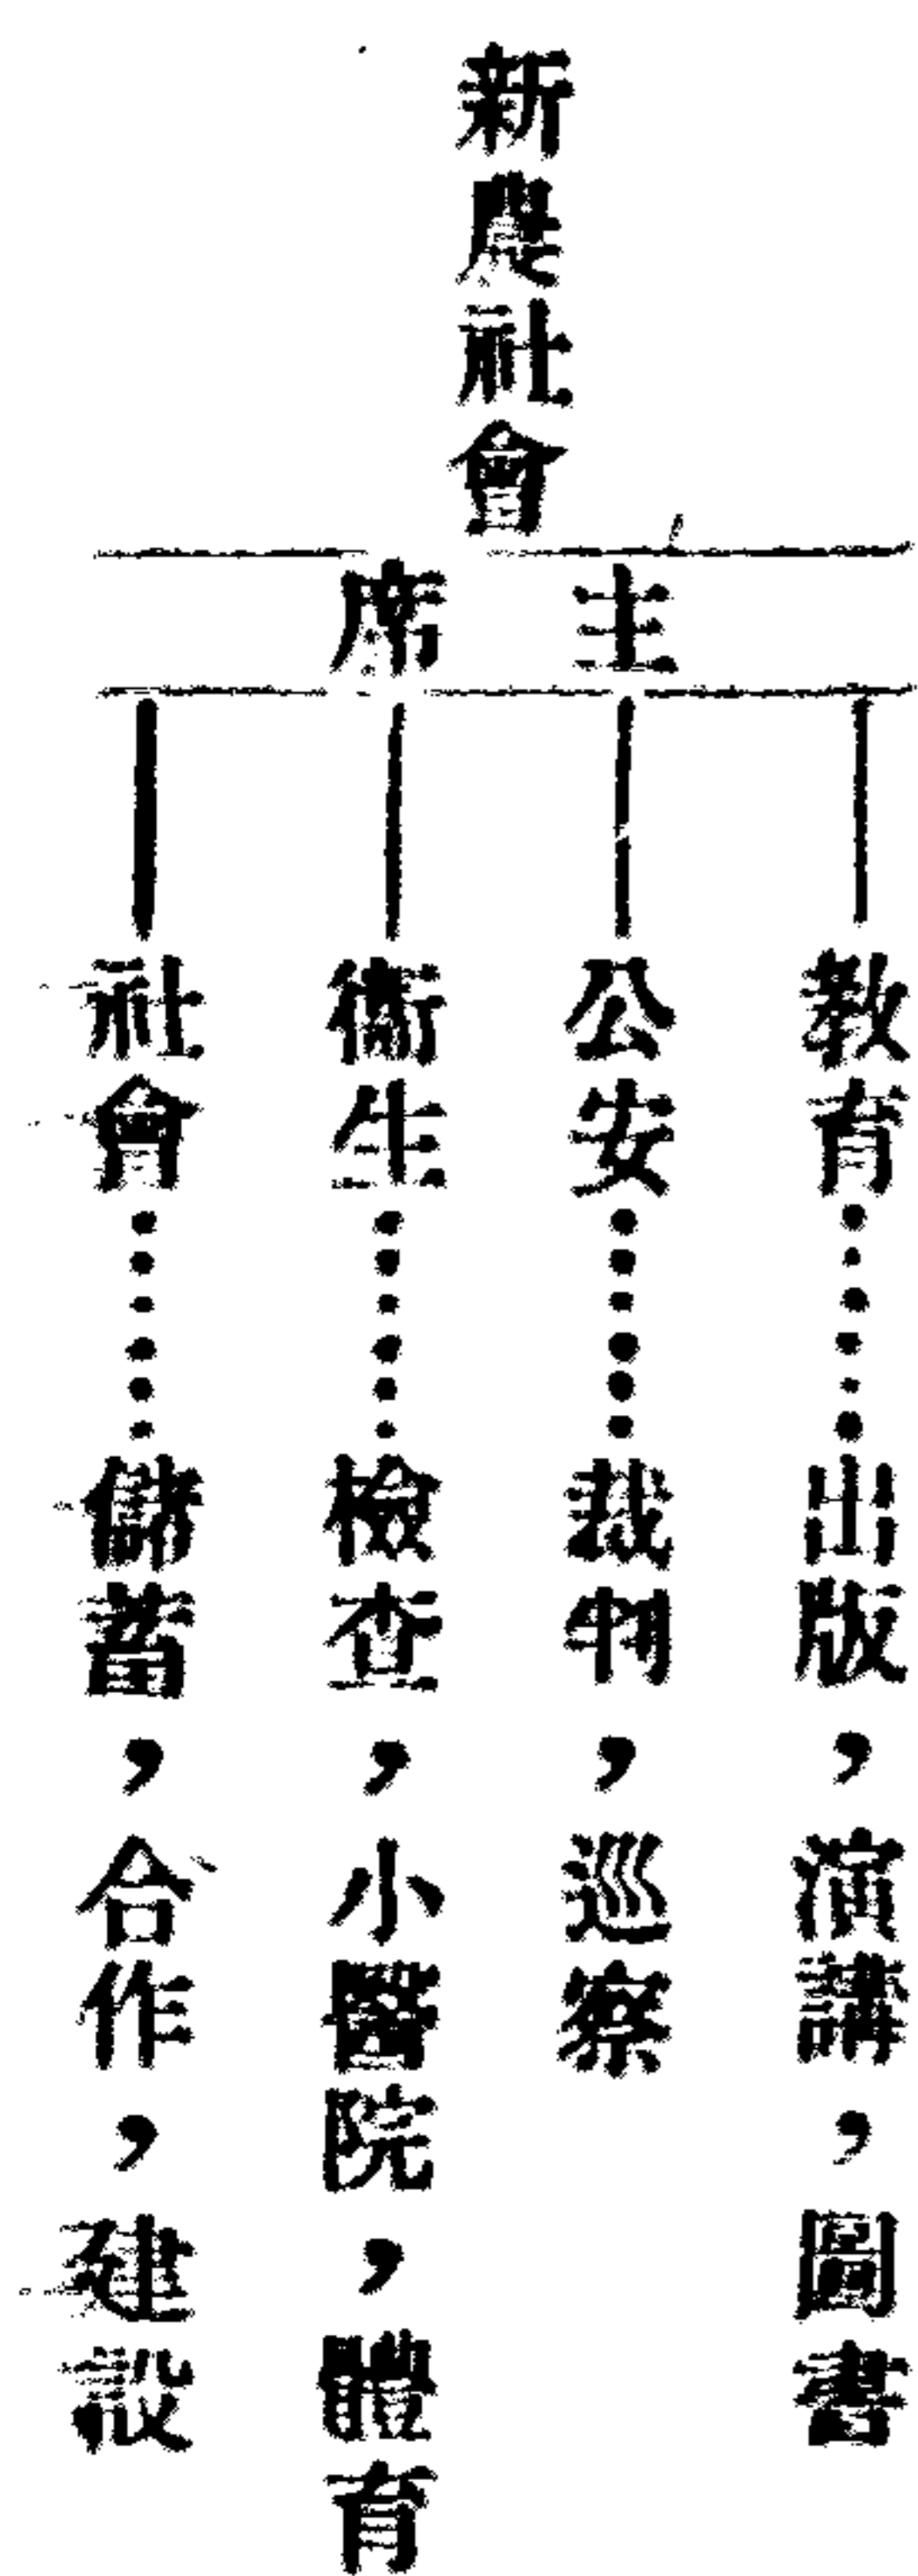 新農社會
主席
教育……出版，演講，圖書
公安……裁判，巡察
衞生……檢查，小醫院，體育
社會……儲蓄，合作，建設